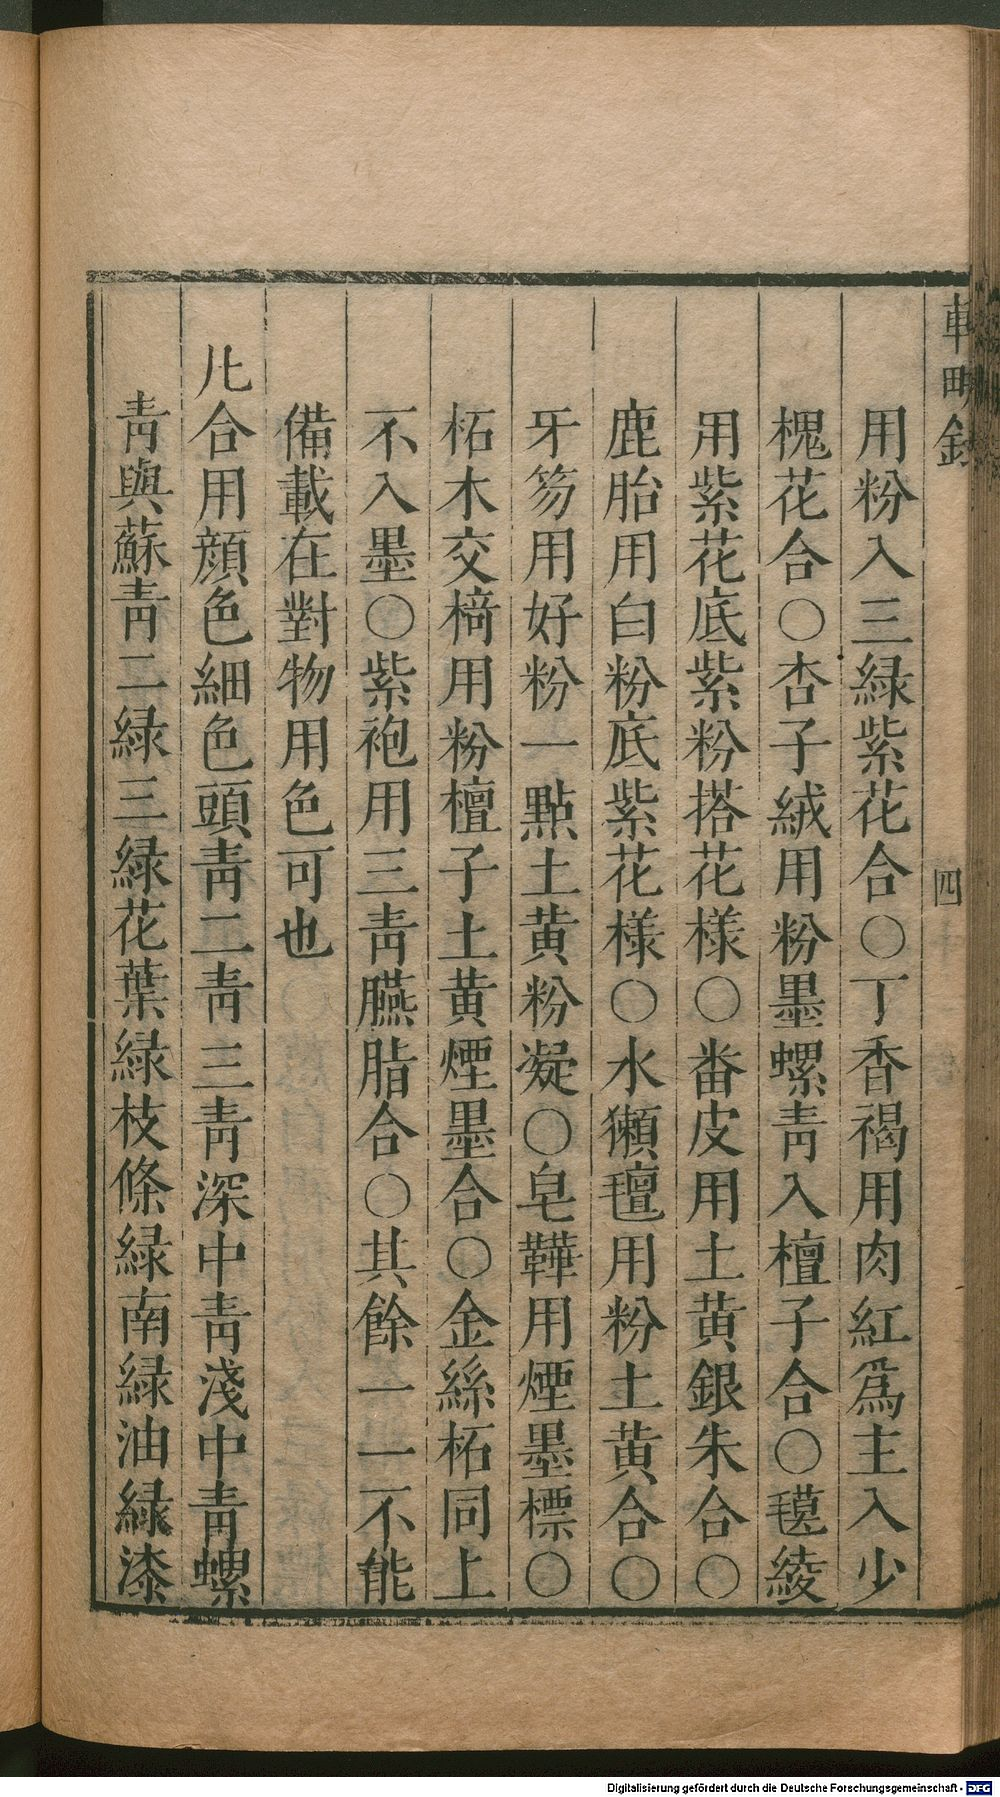 用粉入三緑紫花合○丁香褐用肉紅爲主入少
槐花合○杏子絨用粉墨螺靑入檀子合○毯綾
用紫花底紫粉搭花樣○畨皮用土黄銀朱合○
鹿胎用白粉底紫花樣○水獺氊用粉土黄合○
牙笏用好粉一點土黄粉凝○皂鞾用煙墨標○
柘木交椅用粉檀子土黄煙墨合○金絲柘同上
不入墨○紫袍用三靑臙脂合○其餘一一不能
備載在對物用色可也
凡合用顔色細色頭靑二靑三靑深中靑淺中靑螺
靑與蘇靑二緑三緑花葉緑枝條緑南緑油緑漆
四
Digitalisierung gefördert durch die Deutsche Forschungsgemeinschaft - DFG